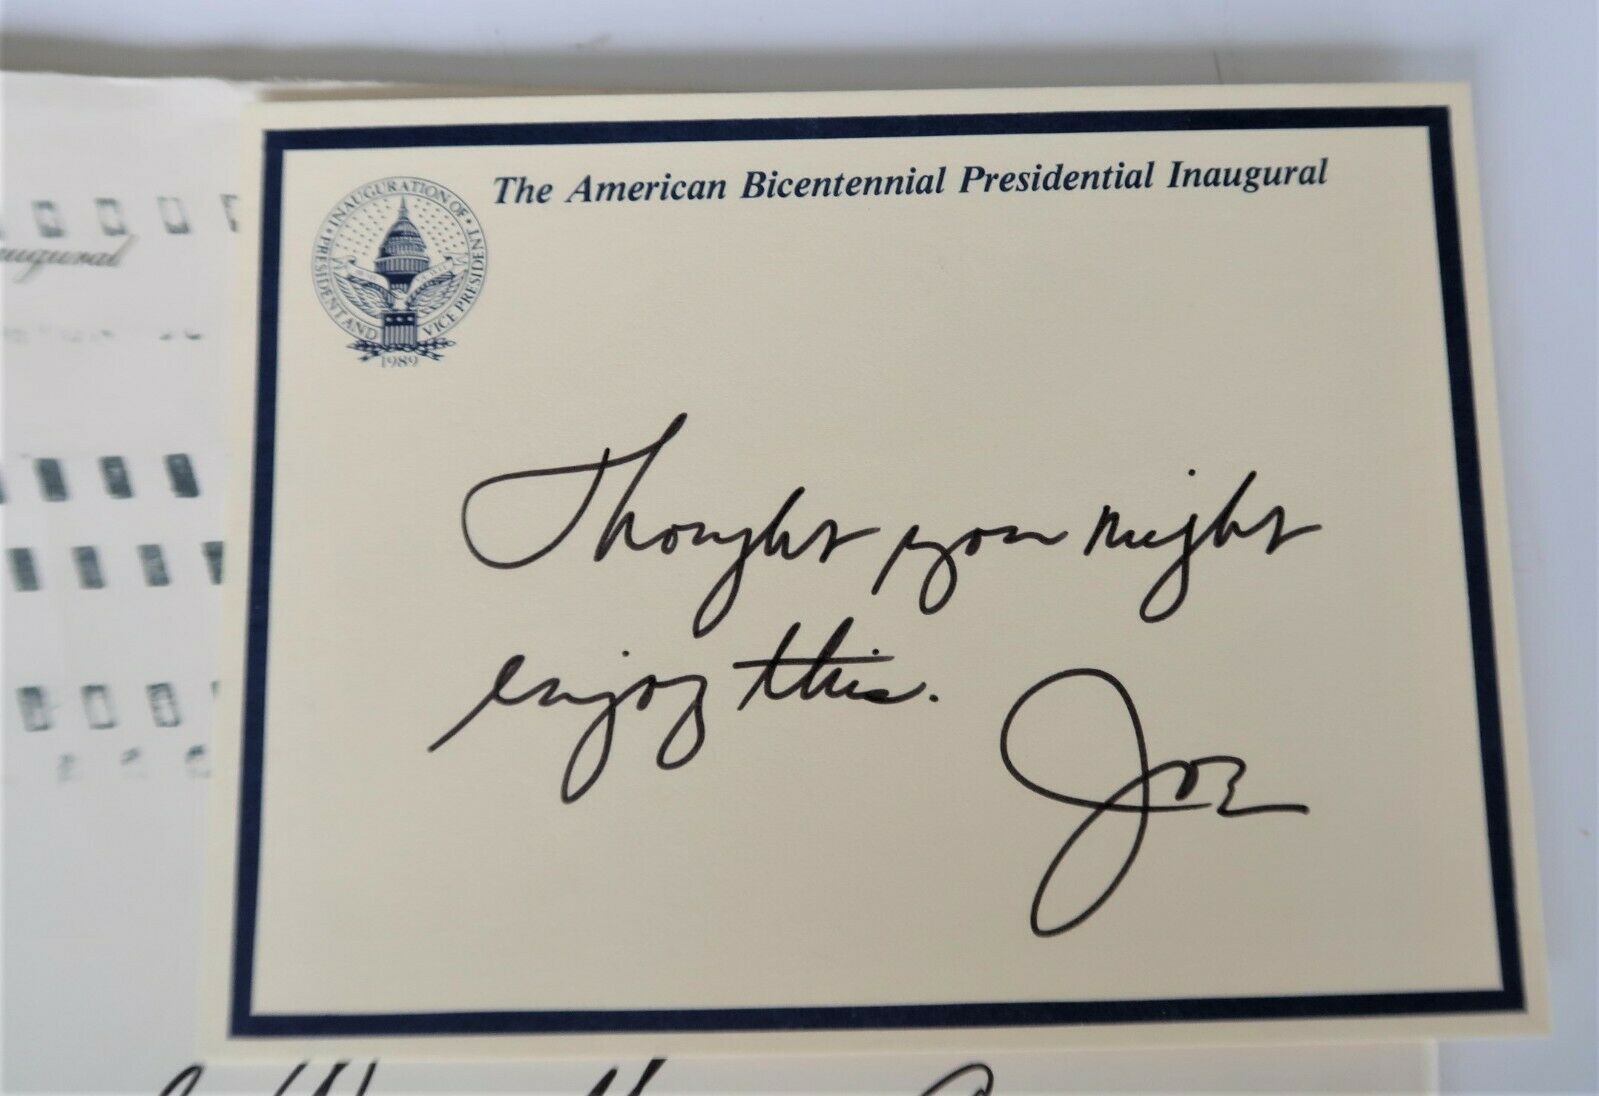 The American Bicentennial Presidential Inaugural
INAUGURATION OF
PRESIDENT AND VICE PRESIDENT
1989
Thought you might
enjoy this.
Joe